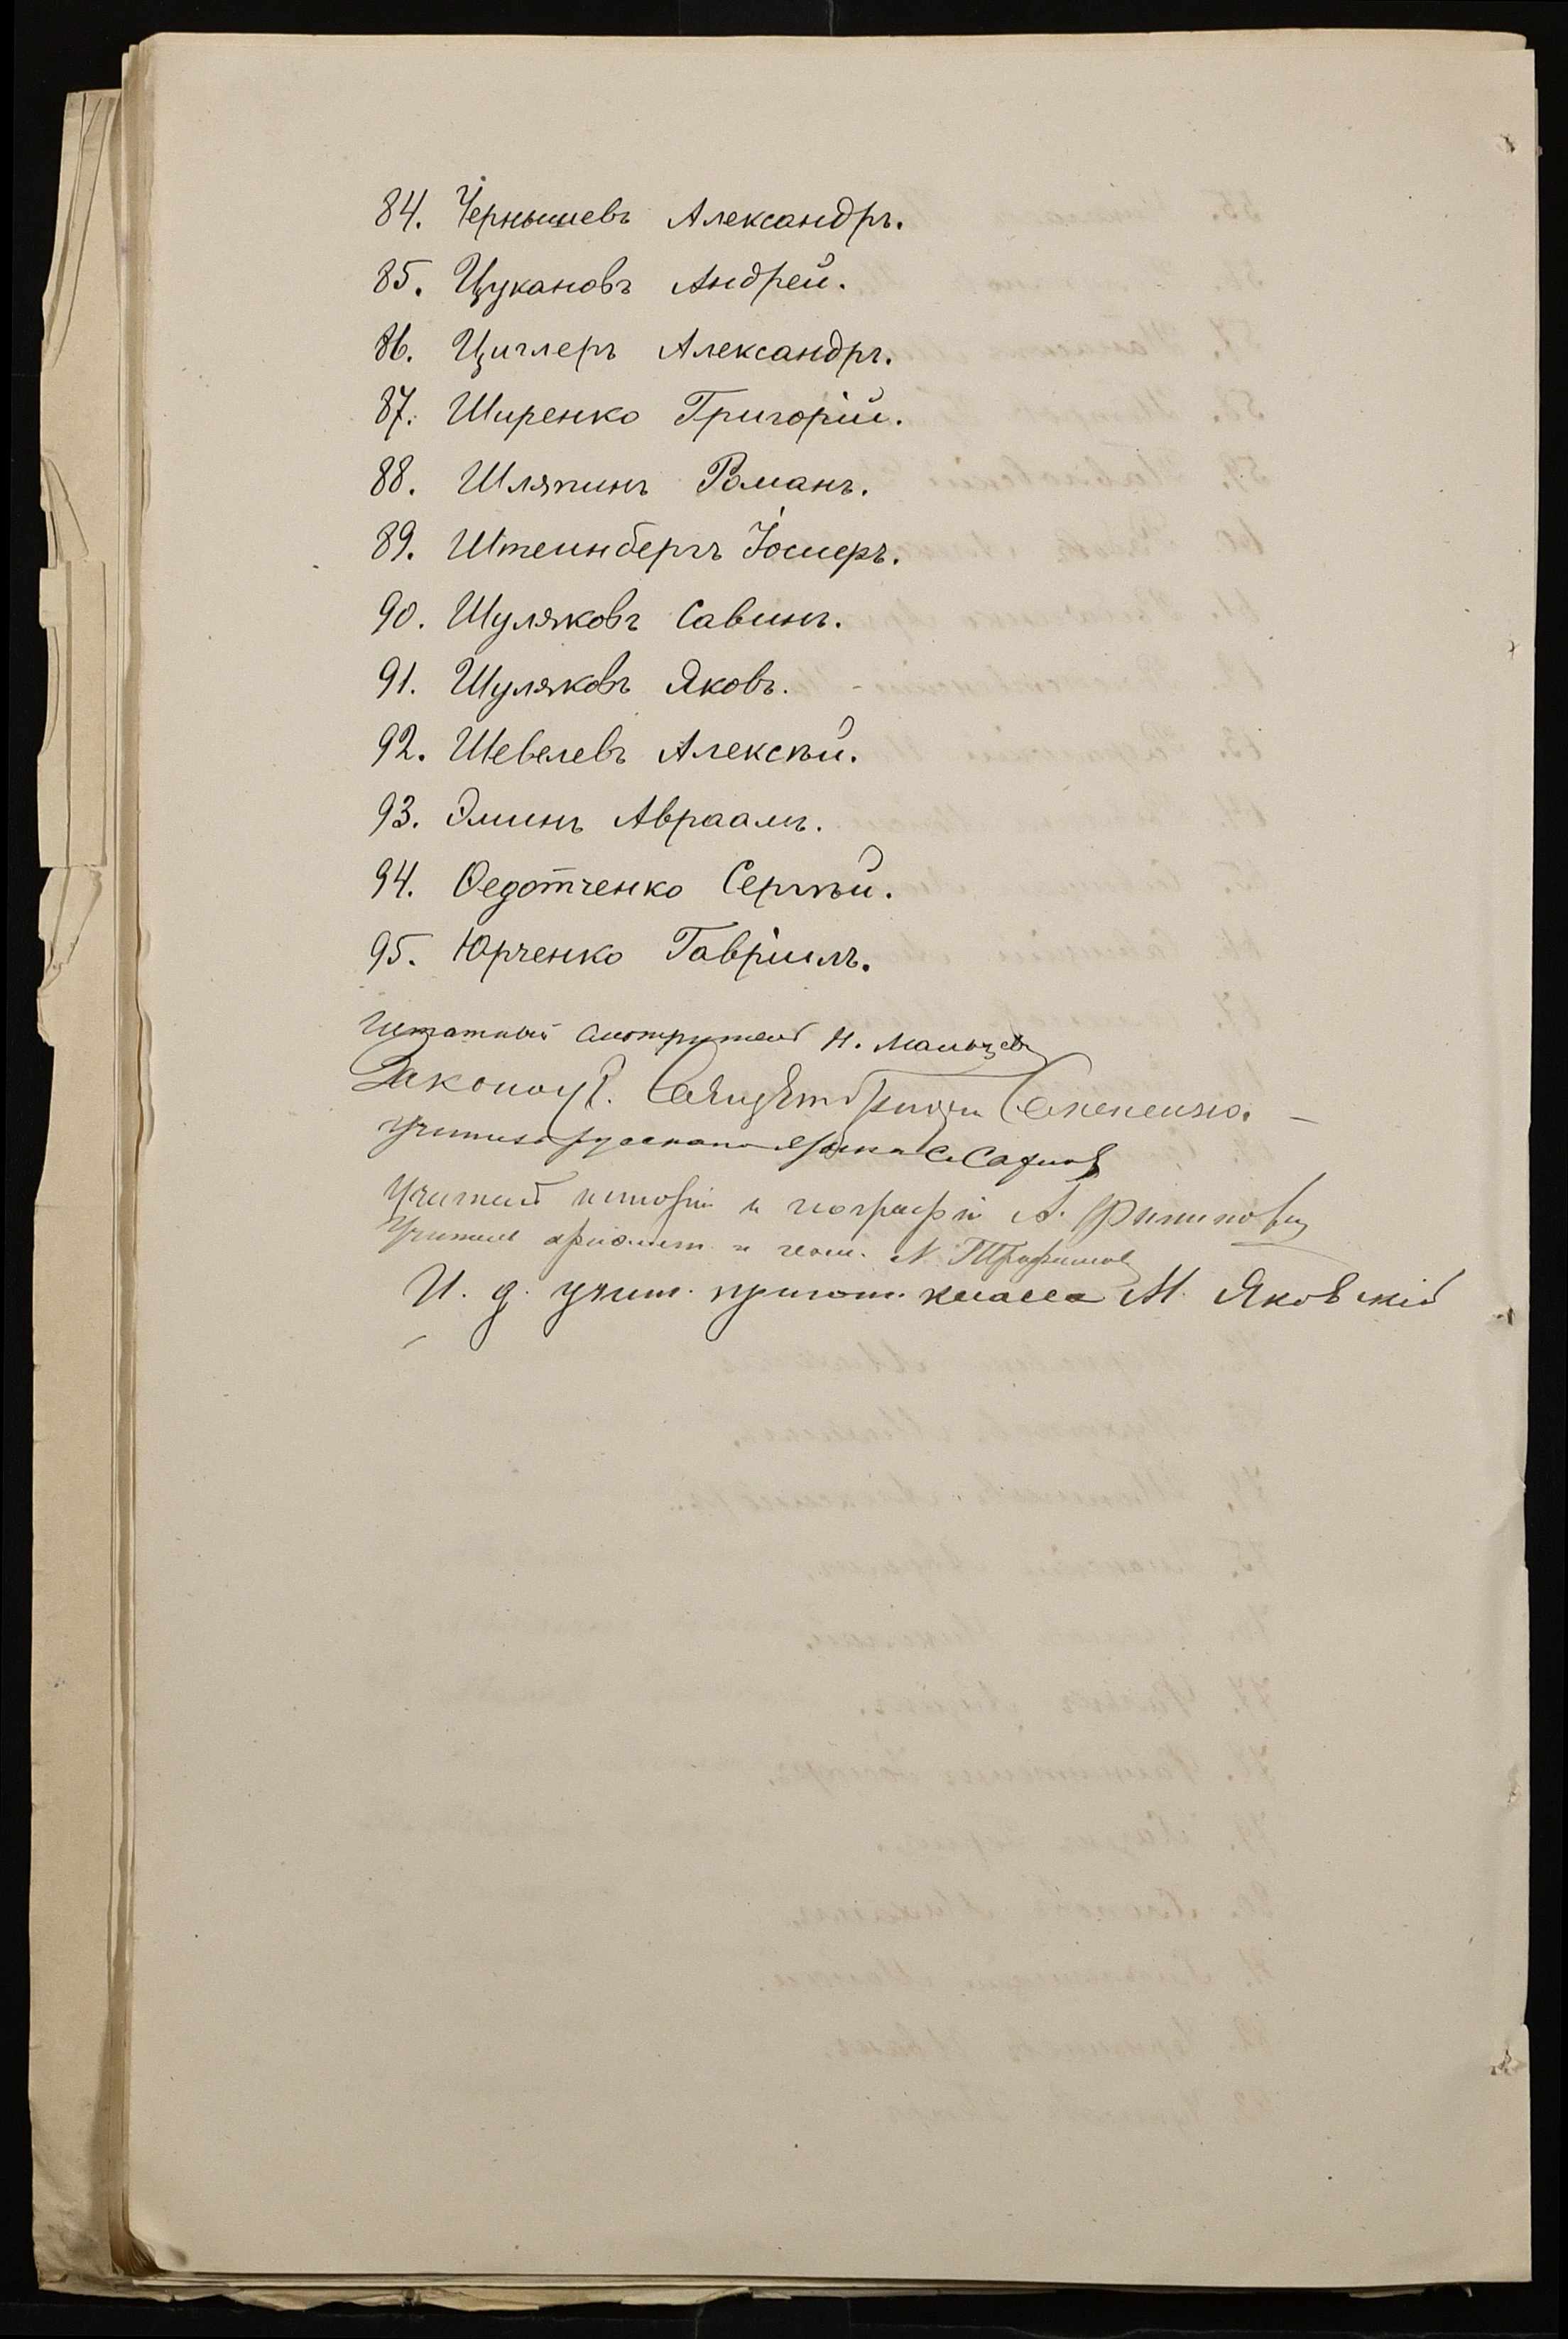 84. Чернышевъ Александръ.
85. Цукановъ Андрей.
86. Циглеръ Александръ.
87. Ширенко Григорій.
88. Шляпинъ Романъ.
89. Штейнбергъ Іосифъ.
90. Шуляковъ Савинъ.
91. Шуляковъ Яковъ.
92. Шевелевъ Алексѣй.
93. Элинъ Авраамъ.
94. Ѳедотченко Сергѣй.
95. Юрченко Гавріилъ.
Штатный смотритель Н. Мальцевъ
Законоуч. Священ
Учитель русскаго языка С.
Учитель исторіи и географіи А. Филиповъ
Учитель ариѳмет. и геом. Н. Трофимовъ
И. д. учит. пригот. класса М. Яковскій